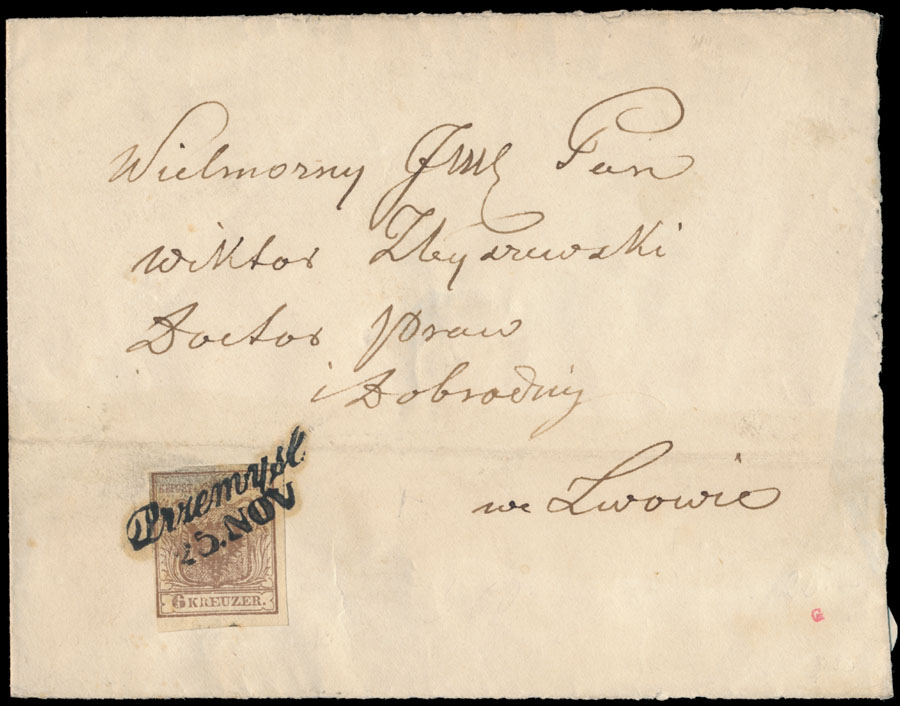 Wielmożny Jmć Pan
Wiktor Zbyszewski
Doctor Praw
i Dobrodziej
we Lwowie
Przemysl.
25.NOV
6 KREUZER.
G